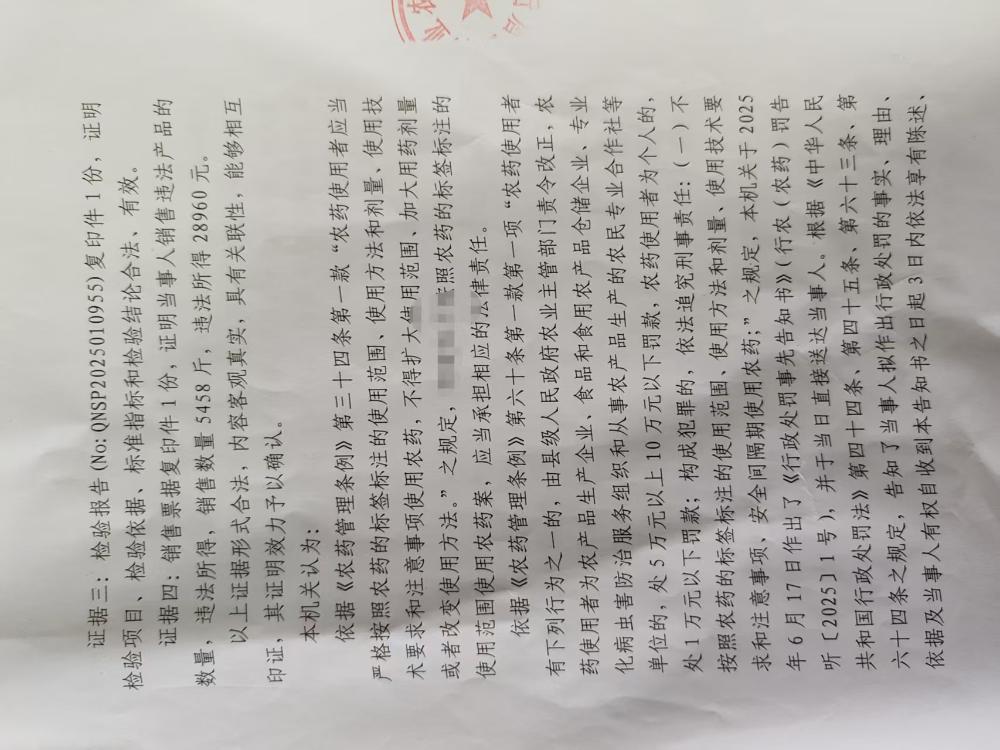 证据三：检验报告(No:QNSP2025010955)复印件1份，证明
检验项目、检验依据、标准指标和检验结论合法、有效。
证据四：销售票据复印件1份，证明当事人销售违法产品的
数量，违法所得，销售数量5458斤，违法所得28960元。
以上证据形式合法，内容客观真实，具有关联性，能够相互
印证，其证明效力予以确认。
本机关认为：
依据《农药管理条例》第三十四条第一款“农药使用者应当
严格按照农药的标签标注的使用范围、使用方法和剂量、使用技
术要求和注意事项使用农药，不得扩大使用范围、加大用药剂量
或者改变使用方法。”之规定，照农药的标签标注的
使用范围使用农药案，应当承担相应的法律责任。
依据《农药管理条例》第六十条第一款第一项“农药使用者
有下列行为之一的，由县级人民政府农业主管部门责令改正，农
药使用者为农产品生产企业、食品和食用农产品仓储企业、专业
化病虫害防治服务组织和从事农产品生产的农民专业合作社等
单位的，处5万元以上10万元以下罚款，农药使用者为个人的，
处1万元以下罚款；构成犯罪的，依法追究刑事责任：（一）不
按照农药的标签标注的使用范围、使用方法和剂量、使用技术要
求和注意事项、安全间隔期使用农药；”之规定，本机关于2025
年6月17日作出了《行政处罚事先告知书》(行农（农药）罚告
听〔2025〕1号)，并于当日直接送达当事人。根据《中华人民
共和国行政处罚法》第四十四条、第四十五条、第六十三条、第
六十四条之规定，告知了当事人拟作出行政处罚的事实、理由、
依据及当事人有权自收到本告知书之日起3日内依法享有陈述、